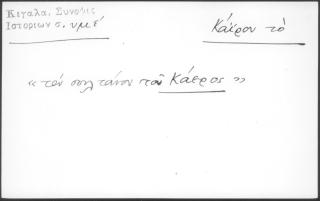 Κιγαλα, Συνοψις
Ιστοριων σ. υμέ
Κάϊρον τὸ
« τὸν σουλτάνον τοῦ Κάερος »